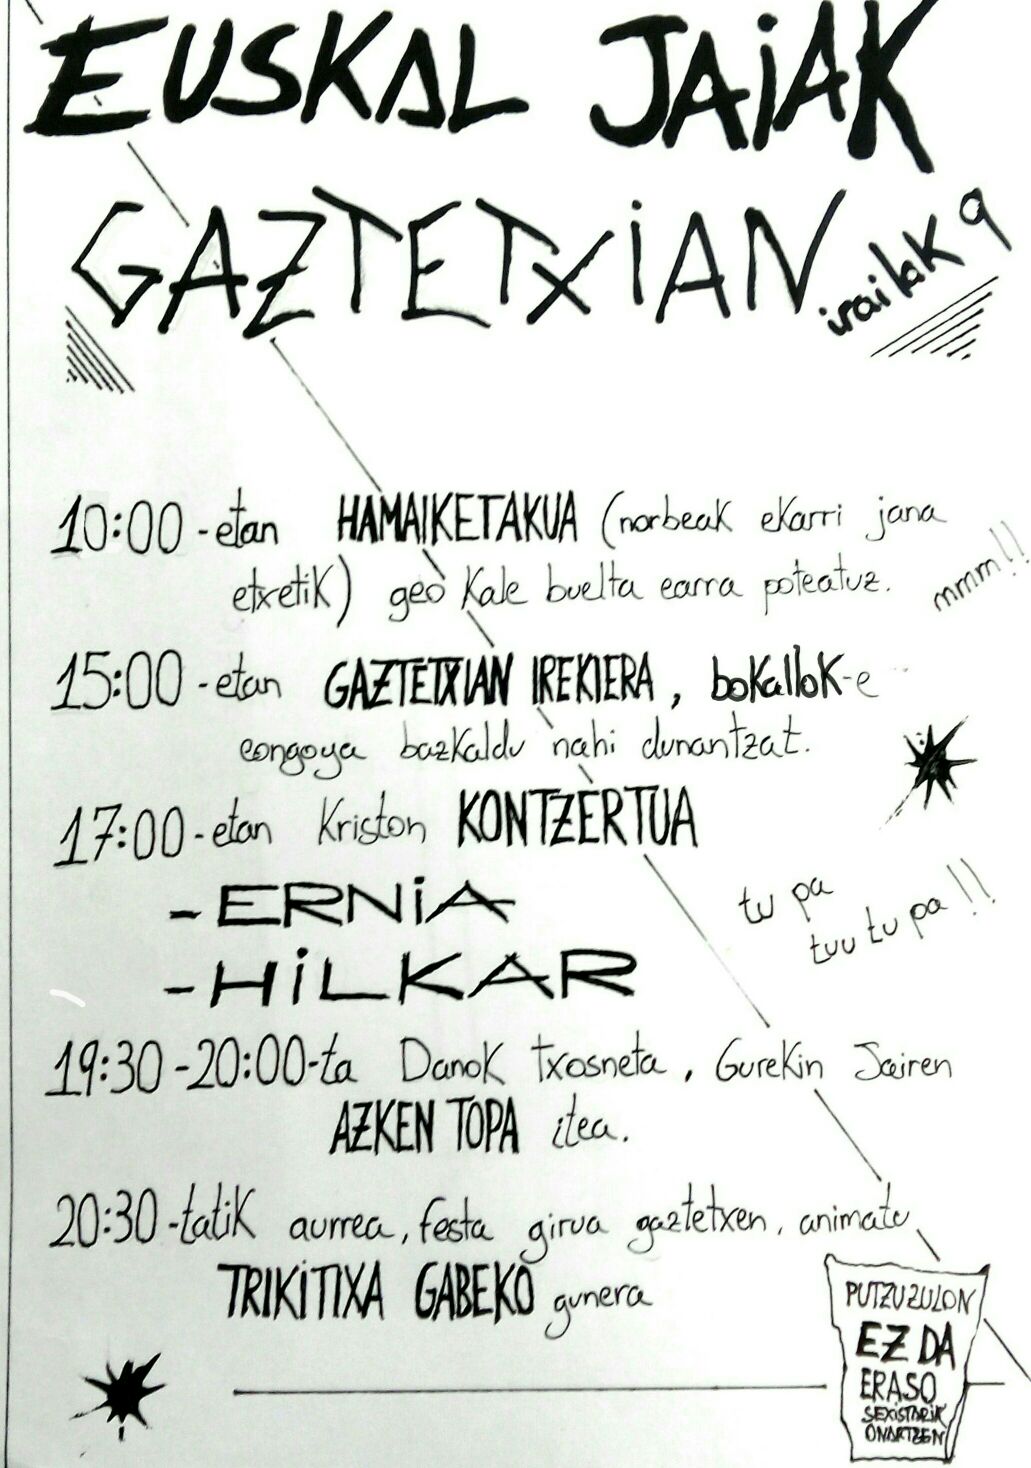 EUSKAL JAIAK
GAZTETXIAN
irailak 9
10:00-etan HAMAIKETAKUA (norbeak ekarri jana
etxetik) geo kale buelta earra poteatuz.
mmm!!
15:00-etan GAZTETXIAN IREKIERA, bokallok-e
eongoya bazkaldu nahi dunantzat.
17:00-etan Kriston KONTZERTUA
- ERNiA
- HiLKAR
tu pa
tuu tu pa!!
19:30-20:00-ta Danok txosneta, Gurekin Jairen
AZKEN TOPA itea.
20:30-tatik aurrea, festa girua gaztetxen, animatu
TRIKITIXA GABEKO gunera
PUTZUZULON
EZ DA
ERASO
SEXISTARIK
ONARTZEN